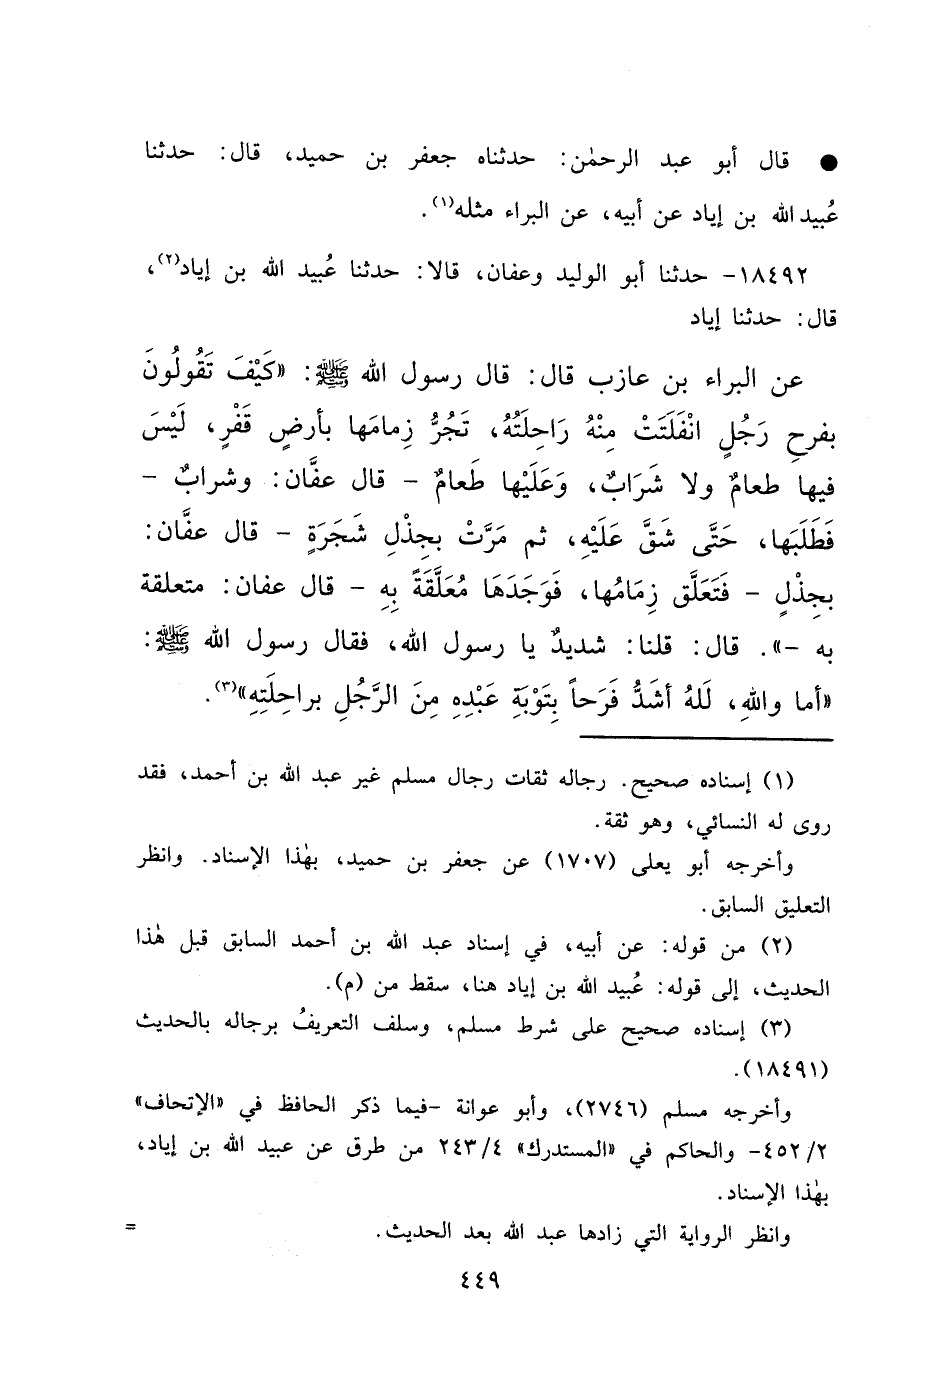 ● قال أبو عبد الرحمٰن: حدثناه جعفر بن حميد، قال: حدثنا
عُبيد الله بن إياد عن أبيه، عن البراء مثله(١).
١٨٤٩٢- حدثنا أبو الوليد وعفان، قالا: حدثنا عُبيد الله بن إياد(٢)،
قال: حدثنا إياد
عن البراء بن عازب قال: قال رسول الله ﷺ: «كَيْفَ تَقُولُونَ
بفرحِ رَجُلٍ انْفَلَتَتْ مِنْهُ رَاحِلَتُهُ، تَجُرُّ زِمامَها بأرضٍ قَفْرٍ، لَيْسَ
فيها طعامٌ ولا شَرَابٌ، وَعَلَيْها طَعامٌ - قال عفَّان: وشرابٌ -
فَطَلَبَها، حَتَّى شَقَّ عَلَيْهِ، ثم مَرَّتْ بِجِذْلِ شَجَرَةٍ - قال عفَّان:
بِجِذْلٍ - فَتَعَلَّق زِمَامُها، فَوَجَدَهَا مُعَلَّقَةً بِهِ - قال عفان: متعلقة
به -». قال: قلنا: شديدٌ يا رسول الله، فقال رسول الله ﷺ:
«أما واللهِ، لَلهُ أشَدُّ فَرَحاً بِتَوْبَةِ عَبْدِهِ مِنَ الرَّجُلِ براحِلَتِهِ»(٣).
(١) إسناده صحيح. رجاله ثقات رجال مسلم غير عبد الله بن أحمد، فقد
روى له النسائي، وهو ثقة.
وأخرجه أبو يعلى (١٧٠٧) عن جعفر بن حميد، بهٰذا الإسناد. وانظر
التعليق السابق.
(٢) من قوله: عن أبيه، في إسناد عبد الله بن أحمد السابق قبل هٰذا
الحديث، إلى قوله: عُبيد الله بن إياد هنا، سقط من (م).
(٣) إسناده صحيح على شرط مسلم، وسلف التعريفُ برجاله بالحديث
(١٨٤٩١).
وأخرجه مسلم (٢٧٤٦)، وأبو عوانة -فيما ذكر الحافظ في «الإتحاف»
٤٥٢/٢- والحاكم في «المستدرك» ٢٤٣/٤ من طرق عن عبيد الله بن إياد،
بهٰذا الإسناد.
وانظر الرواية التي زادها عبد الله بعد الحديث. =
٤٤٩